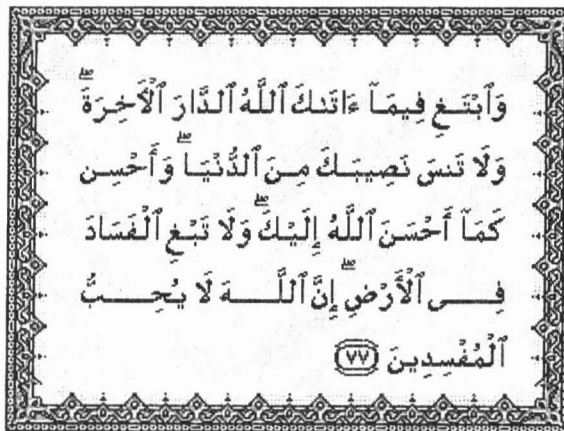 وَٱبْتَغِ فِيمَآ ءَاتَىٰكَ ٱللَّهُ ٱلدَّارَ ٱلْأَخِرَةَ ۖ
وَلَا تَنسَ نَصِيبَكَ مِنَ ٱلدُّنْيَا ۖ وَأَحْسِن
كَمَآ أَحْسَنَ ٱللَّهُ إِلَيْكَ ۖ وَلَا تَبْغِ ٱلْفَسَادَ
فِى ٱلْأَرْضِ ۖ إِنَّ ٱللَّهَ لَا يُحِبُّ
ٱلْمُفْسِدِينَ ٧٧